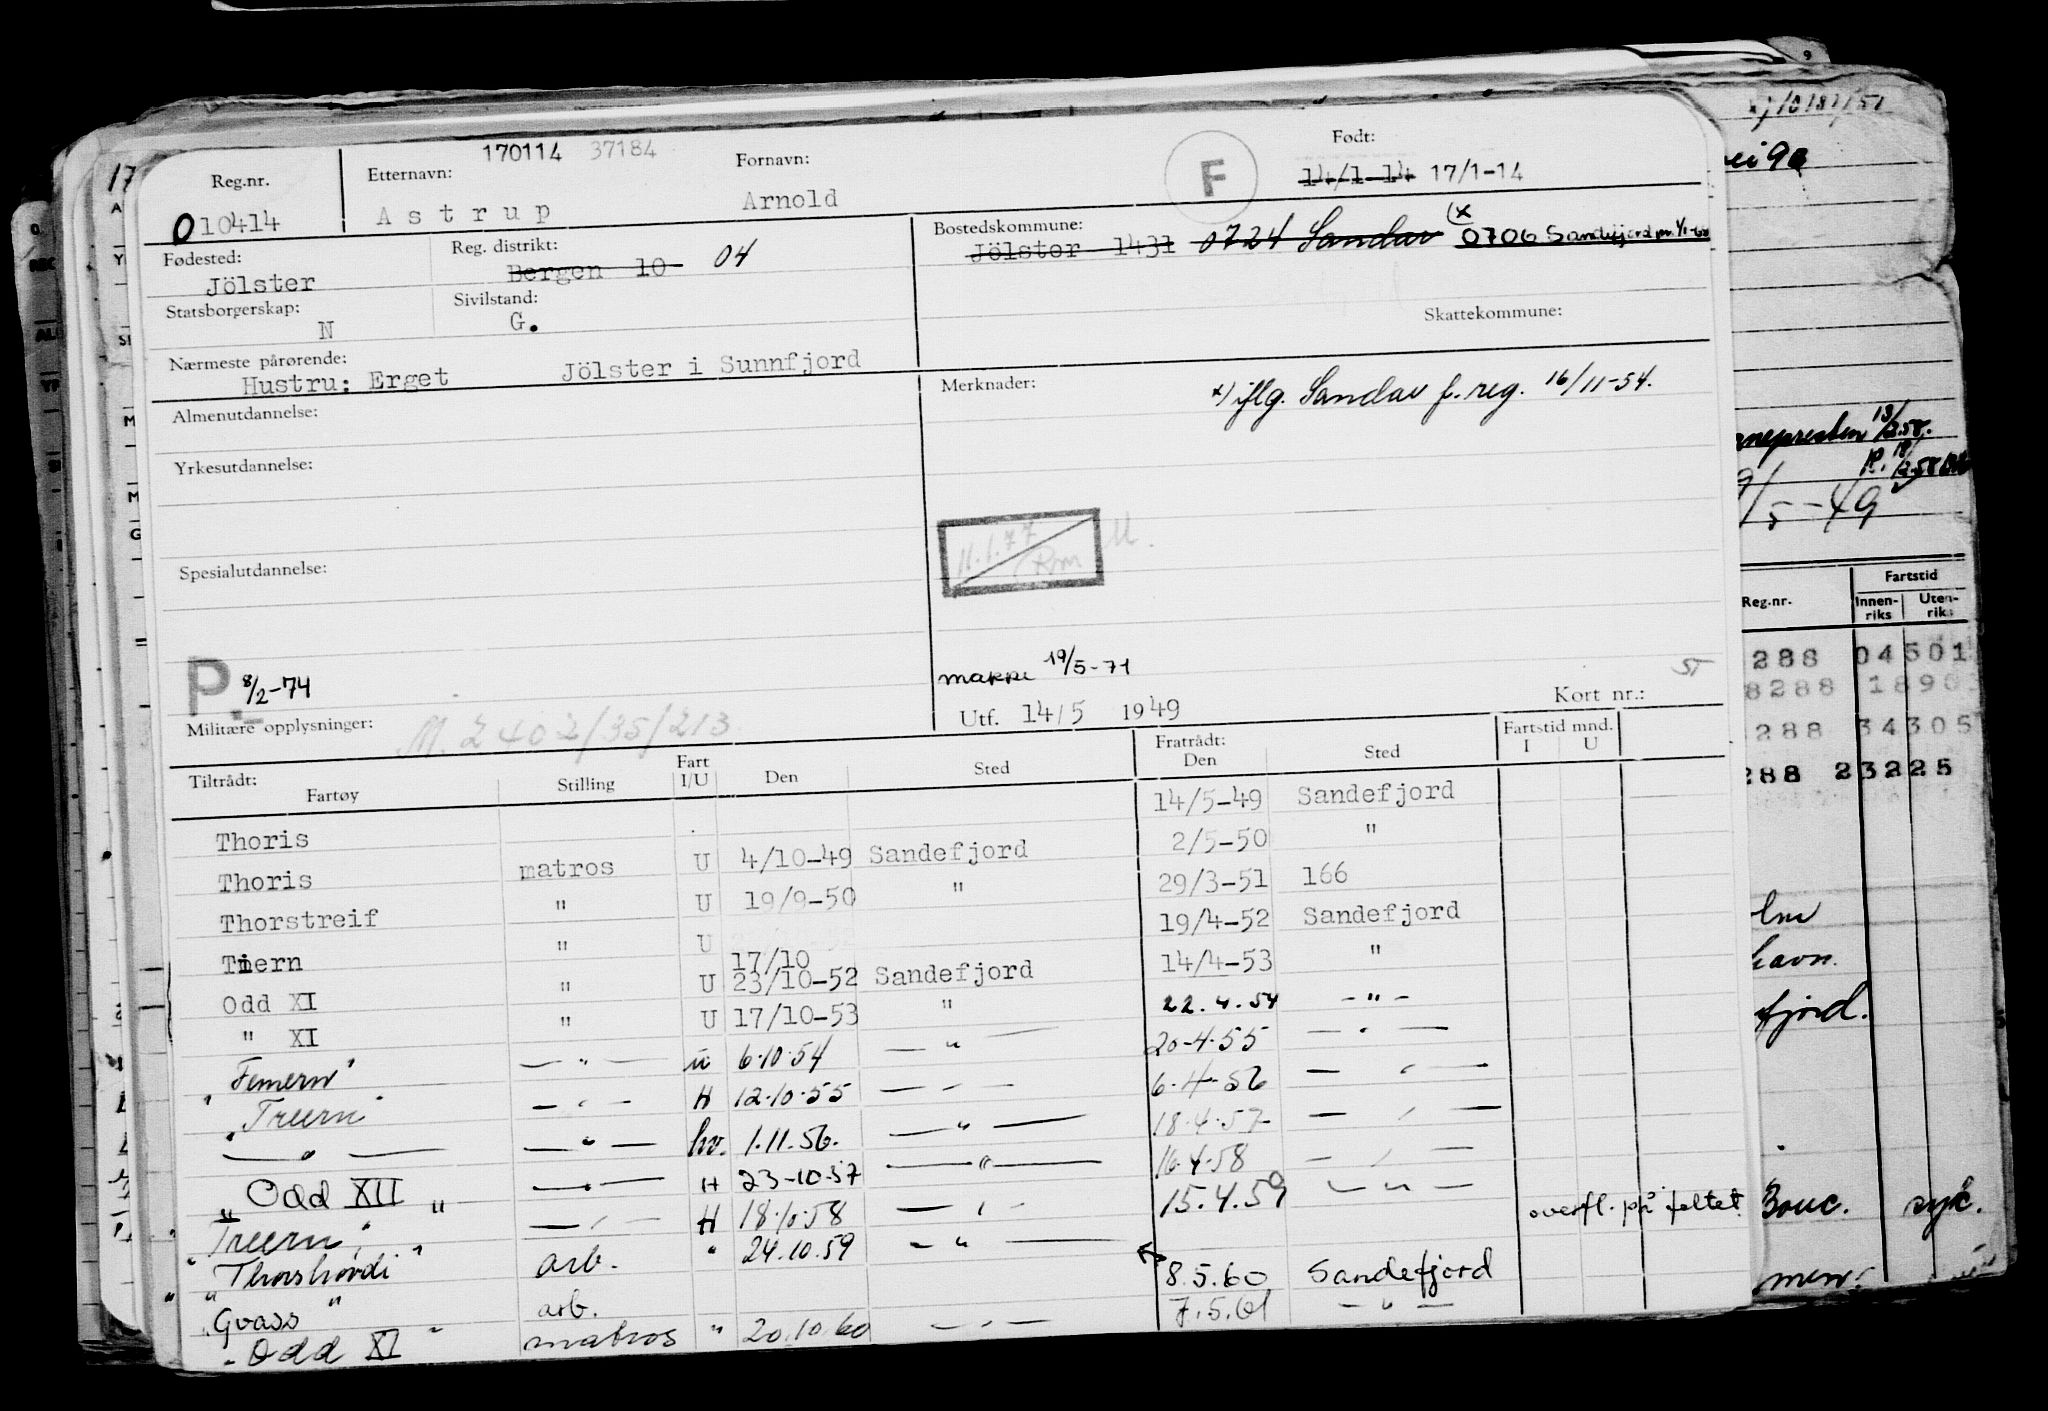 170114 37184
Reg.nr. Etternavn: Fornavn: F Født:
010414 Astrup Arnold 14/1-14 17/1-14
Fødested: Reg. distrikt: Bostedskommune: (x
Jölster Bergen 10 04 Jölster 1431 0724 Sandar 0706 Sandefjord pr. 1/1-68
Statsborgerskap: Sivilstand: Skattekommune:
N G.
Nærmeste pårørende:
Hustru: Erget Jölster i Sunnfjord
Almenutdannelse: Merknader: x) iflg. Sandar f.reg. 16/11-54.
Yrkesutdannelse:
11.1.77 M.
Spesialutdannelse:
P. 8/2-74 19/5-71
Militære opplysninger: M. 2402/35/213 Utf. 14/5 1949 Kort nr.:
Tiltrådt: Fratrådt: Fartstid mnd.
Fartøy Stilling Fart I/U Den Sted Den Sted I U
Thoris 14/5-49 Sandefjord
Thoris matros U 4/10-49 Sandefjord 2/5-50 "
Thorstreif " U 19/9-50 " 29/3-51 166
Tiern " U 19/4-52 Sandefjord
17/10
Odd XI " U 23/10-52 Sandefjord 14/4-53 "
" XI " U 17/10-53 " 22.4.54 - " -
"Femern" — " — u 6.10.54 — " — 20-4.55 — " —
"Treern" — " — H 12.10.55 — " — 6.4.56 — " —
— " — — " — hv. 1.11.56. — " — 18.4.57 — " —
"Odd XII" — " — H 23-10-57 — " — 16.4.58 — " —
"Treern" — " — H 18.10.58 — " — 15.4.59 — " —
"Thorshövdi" arb. " 24.10.59 — " — overfl. på feltet.
"Gvass" arb. 8.5.60 Sandefjord
"Odd XI" matros " 20.10.60 — " — 7.5.61 — " —
9/5-49
Reg.nr. Fartstid
Innen-riks Uten-riks
288 04501
8288 1890
288 34305
288 23225
havn.
fjord.